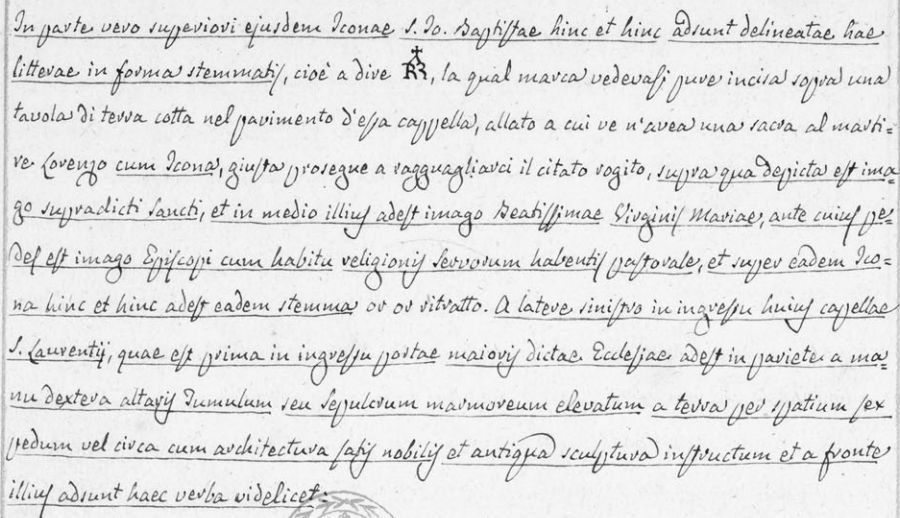 In parte vero superiori ejusdem Iconae S. Io. Baptistae hinc et hinc adsunt delineatae hae
litterae in forma stemmatis, cioè a dire RR, la qual marca vedevasi pure incisa sopra una
tavola di terra cotta nel pavimento d'essa cappella, allato a cui ve n'avea una sacra al marti=
re Lorenzo cum Icona, giusta prosegue a ragguagliarci il citato rogito, supra qua depicta est ima=
go supradicti Sancti, et in medio illius adest imago Beatissimae Virginis Mariae, ante cuius pe=
des est imago Episcopi cum habitu religionis Servorum habentis pastorale, et super eadem Ico=
na hinc et hinc adest eadem stemma or or ritratto. A latere sinistro in ingressu huius capellae
S. Laurentij, quae est prima in ingressu portae maioris dictae Ecclesiae adest in pariete a ma=
nu dextera altaris Tumulum seu Sepulcrum marmoreum elevatum a terra per spatium sex
pedum vel circa cum architectura satis nobilis et antiqua sculptura instructum et a fronte
illius adsunt haec verba videlicet: